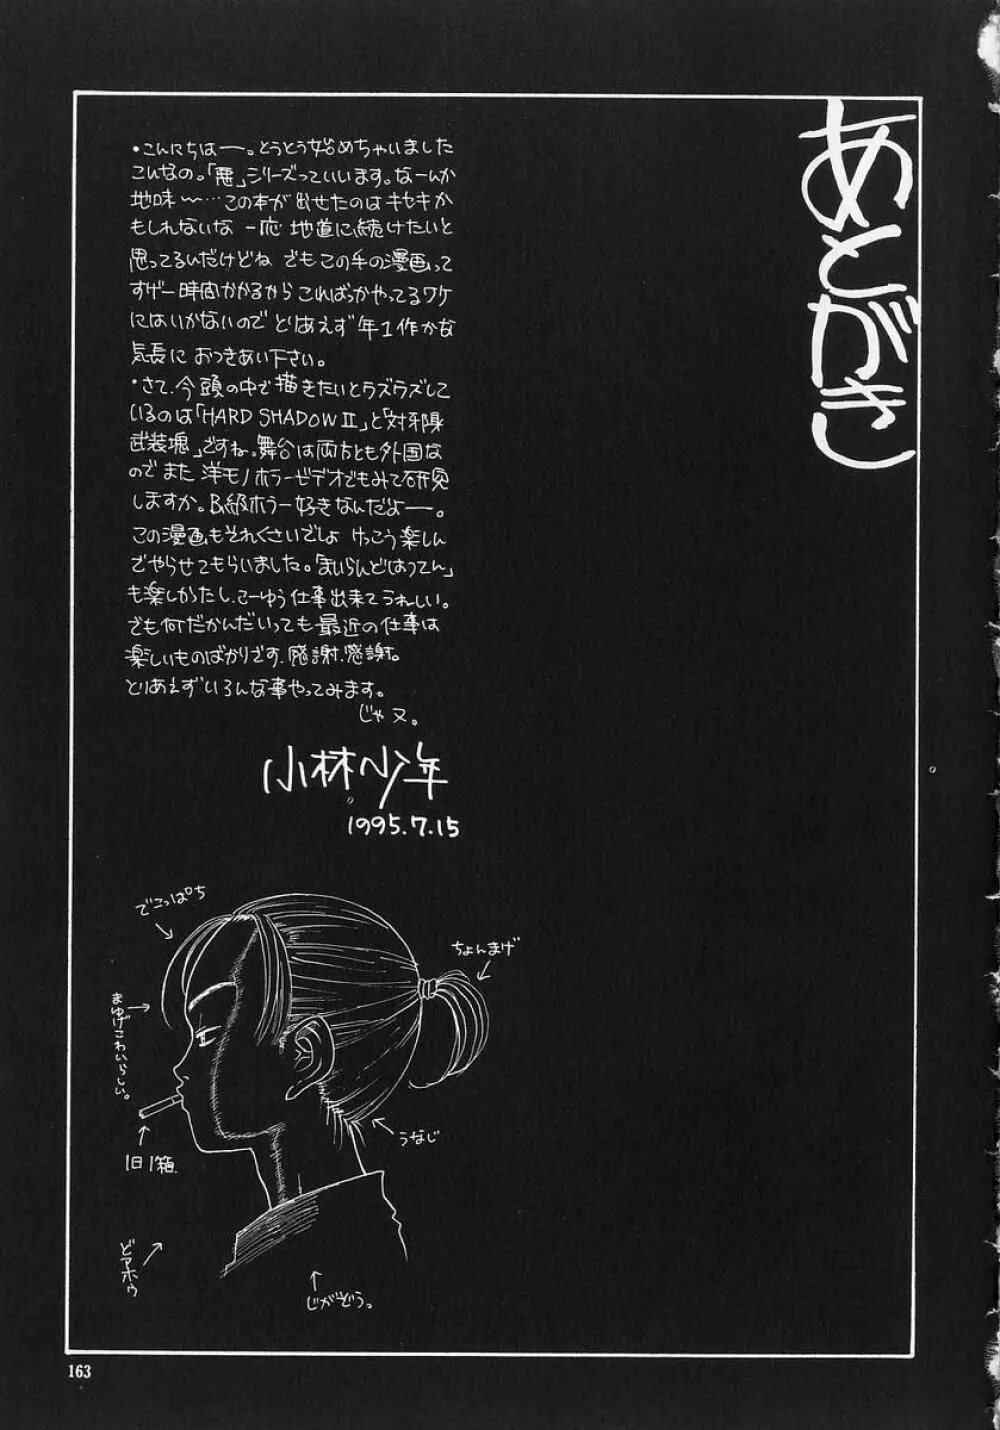 あとがき
・こんにちはー。とうとう始めちゃいました
こんなの。「悪」シリーズっていいます。なーんか
地味〜…この本が出せたのはキセキか
もしれないな 一応 地道に続けたいと
思ってるんだけどね でもこの手の漫画って
すげー時間かかるから こればっかやってるワケ
にはいかないので とりあえず年1作かな
気長に おつきあい下さい。
・さて、今頭の中で描きたいとウズウズして
いるのは「HARD SHADOW II」と「対邪陰
武装堀」ですね。舞台は両方とも外国な
のでまた 洋モノホラービデオでもみて研究
しますか。B級ホラー好きなんだよー。
この漫画もそれくさいでしょ けっこう楽しん
でやらせてもらいました。「まいらんどはつでん」
も楽しかったし、こーゆう仕事出来てうれしい。
でも何だかんだいっても最近の仕事は
楽しいものばかりです、感謝、感謝。
とりあえずいろんな事やってみます。
じゃ又。
小林少年
1995.7.15
でこっぱち
ちょんまげ
まゆげこわいらしい。
1日1箱
うなじ
どアホゥ
じがぞう。
163